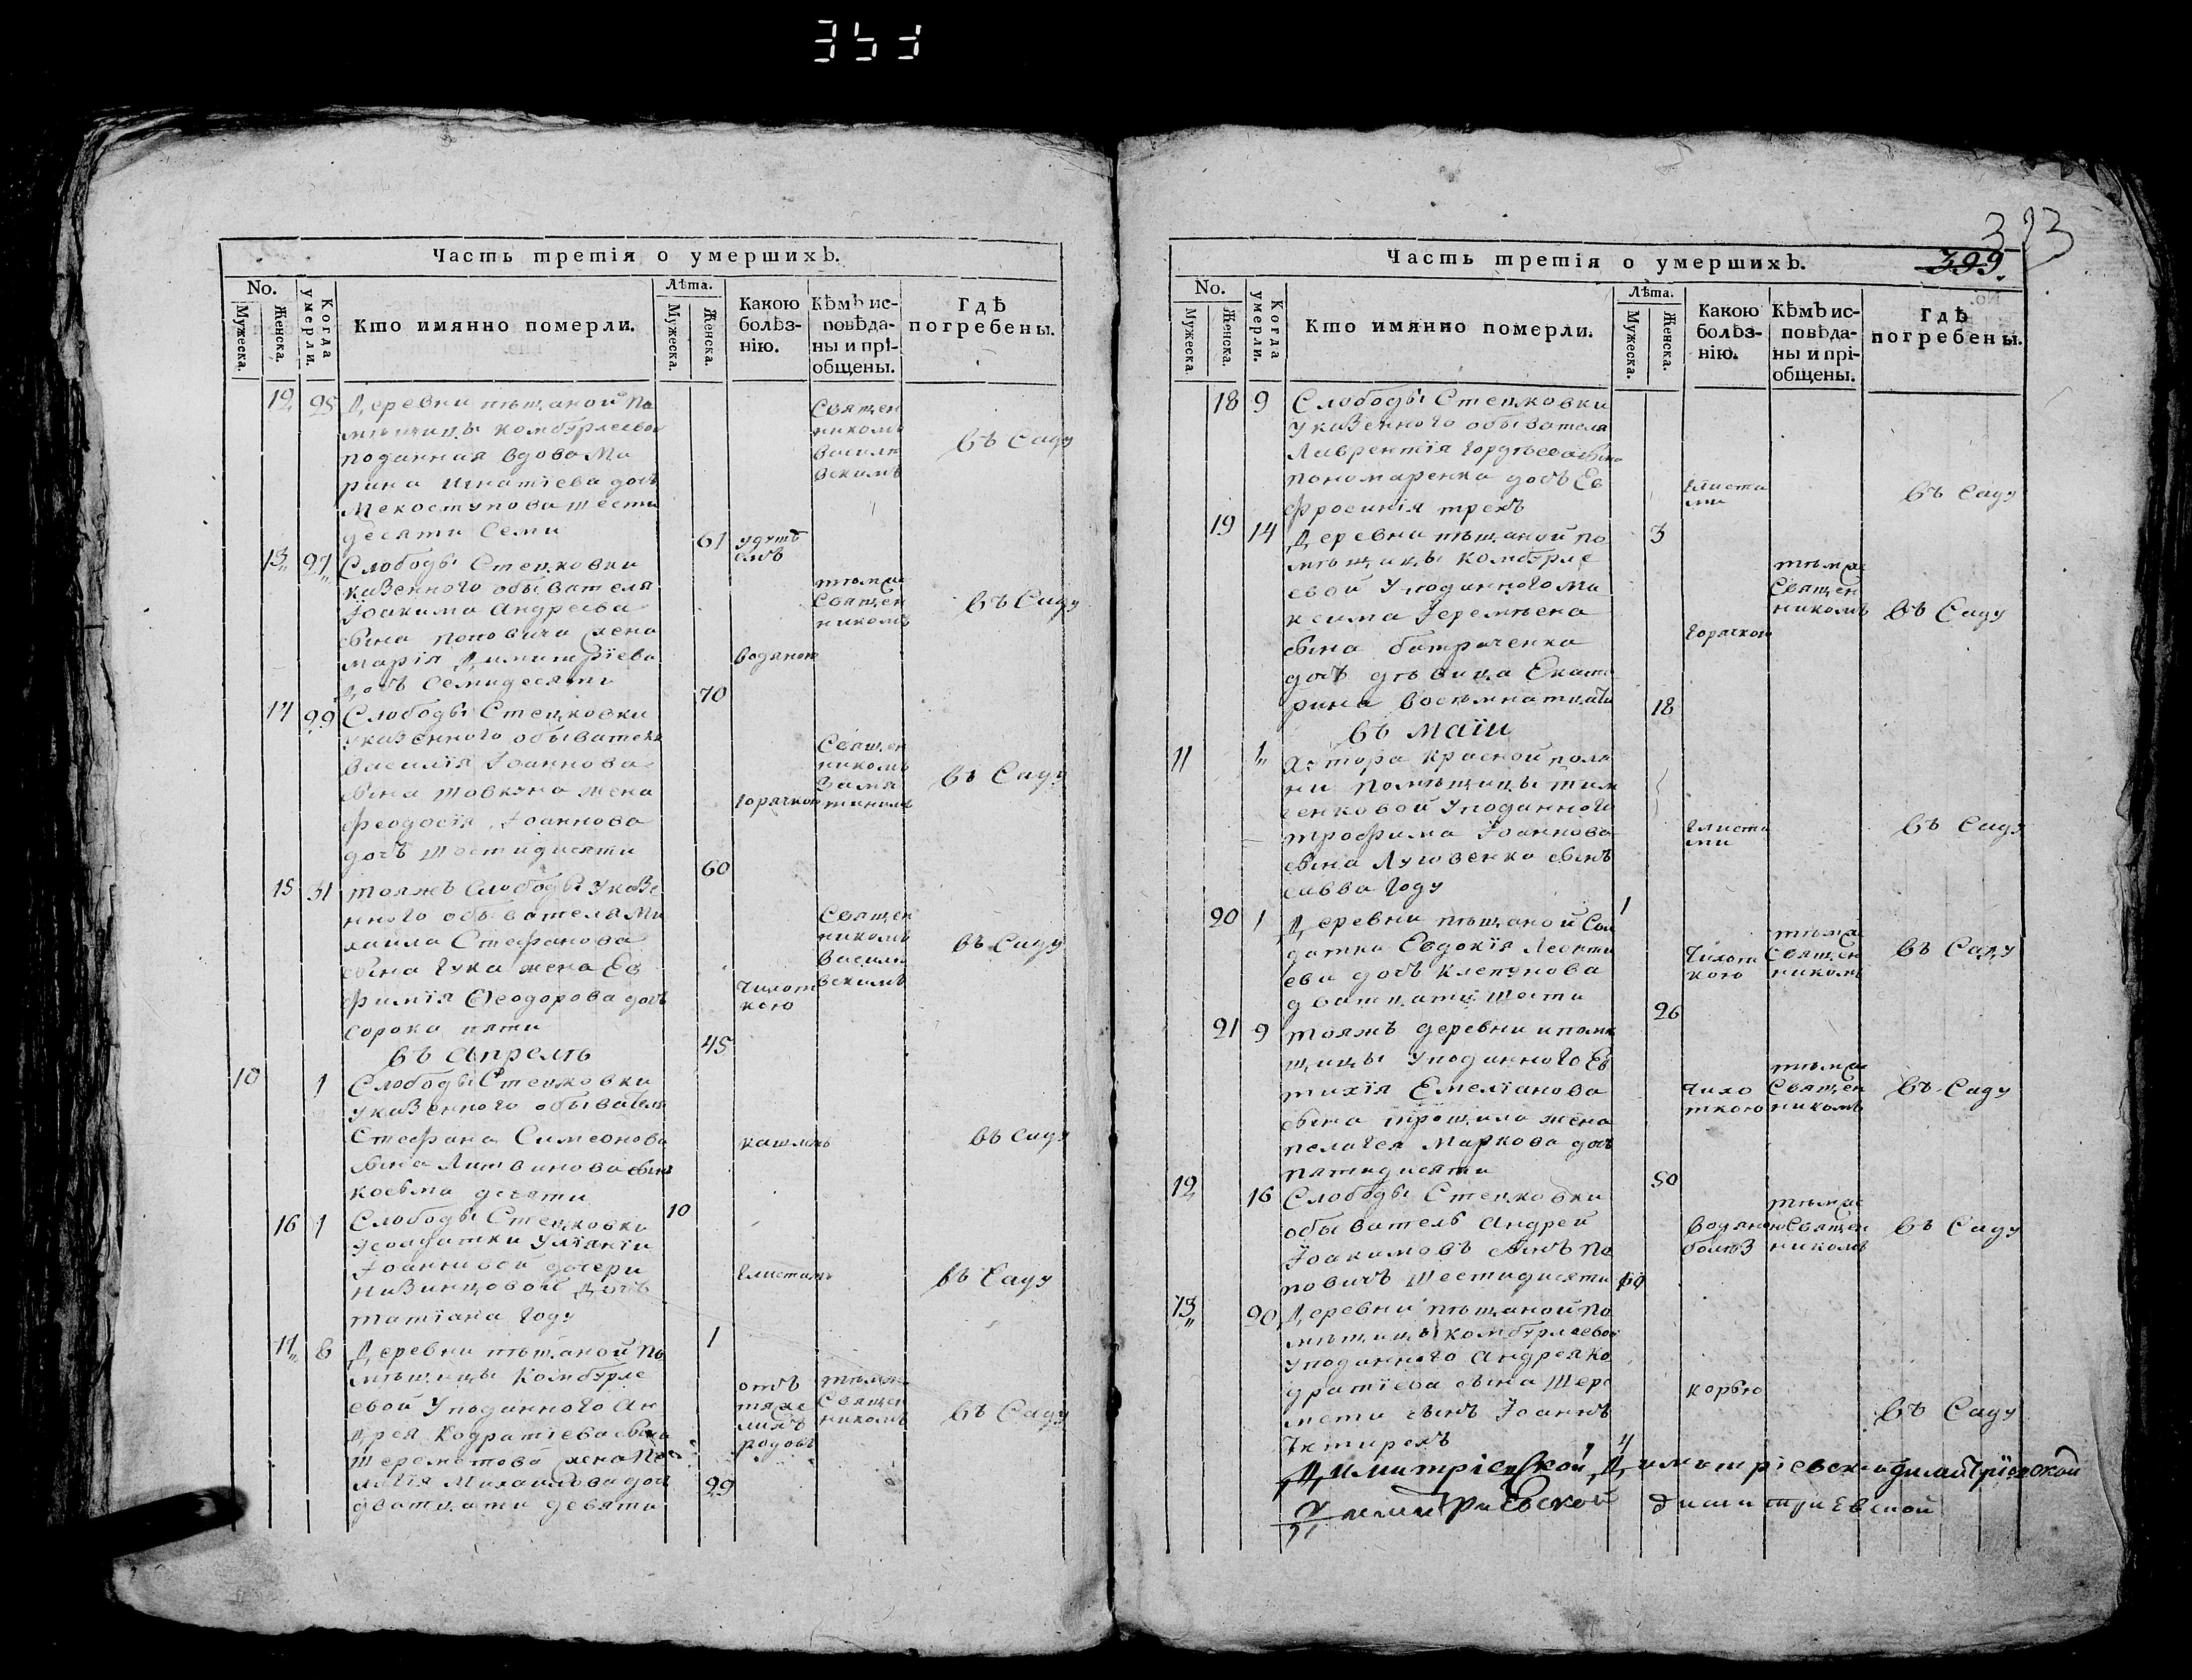 353
Часть третія о умершихъ.
No.
Мужеска.
Женска.
Когда умерли.
Кто имянно померли.
Лѣта.
Мужеска.
Женска.
Какою болѣз-
нію.
Кѣмъ ис-
повѣда-
ны и прі-
общены.
Гдѣ
погребены.
12 25 Деревни пѣщаной по
мѣщицы комбурлеевой
поданная вдова Ма
рина Игнатіева дочь
шести
десяти семи 67
Священ
никомъ
Васили
вскимъ
въ Саду
13 27 Слободы Стецковки
казенного обывателя
Іоакима Андреева
сына поповича жена
марія Димитріева
дочь семидесяти 70
водяною
тѣмже
Священ
никомъ
въ Саду
14 29 Слободы Стецковки
указенного обывателя
Василія Іоаннова
сына товкуна жена
феодосія Іоаннова
дочь шестидисяти 60
горячкою
Священ
никомъ
въ Саду
15 31 тояжъ слободы указе
нного обывателя Ми
хаила Стефанова
сына Гука жена Ев
фимія Феодорова дочь
сорока пяти 45
Чихот
кою
Священ
никомъ
Васили
вскимъ
въ Саду
въ апрелѣ
10 1 Слободы Стецковки
указенного обывателя
Стефана Симеонова
сына Литвинова сынъ
косьма десяти 10
кашлемъ
въ саду
16 1 Слободы Стецковки
Уліяніи
Іоанновои дочери
дочъ
татіана году 1
глистами
въ Саду
17 6 Деревни пѣщаной по
мѣщицы Комбурле
евой Уподанного Ан
дрея Кодратіева сына
Шереметова жена
Михаилова дочь
дватцати девяти 29
отъ
тяже
лихъ
родовъ
тѣмже
Священ
никомъ
въ Саду
323
399.
Часть третія о умершихъ.
No.
Мужеска.
Женска.
Когда умерли.
Кто имянно померли.
Лѣта.
Мужеска.
Женска.
Какою болѣз-
нію.
Кѣмъ ис-
повѣда-
ны и прі-
общены.
Гдѣ
погребены.
18 9 Слободы Стецковки
указенного обывателя
Лаврентія Гордѣева сына
пономаренка дочъ Ев
фросинія трехъ 3
глиста
ми
въ Саду
19 14 Деревни пѣщаной по
мѣщицы комбурле
евой Уподанного Ма
ксима Іеремѣена
сына батраченка
дочъ дѣвица Екате
рина восемнатцати 18
горячкою
тѣмже
Священ
никомъ
въ Саду
въ маіи
11 1 Хутора Красной поля
ни помѣщицы тим
ченковой Уподанного
трофима Іоаннова
сына Луговенка сынъ
савва году 1
глиста
ми
въ Саду
20 1 Деревни пѣщаной Сол
датка Евдокія Леонти
ева дочъ клепунова
дватцати шести 26
Чихот
кою
тѣмже
Священ
никомъ
въ Саду
21 9 тояжъ деревни ипомѣ
щицы Уподанного Ев
тихія Емеліанова
сына трошила жена
пелагея Маркова дочъ
пятидисяти 50
Чихо
ткою
тѣмже
Священ
никомъ
въ Саду
12 16 Слободы Стецковки
обыватель Андрей
Іоакимовъ сынъ по
повичъ шестидисяти 60
водяною
болѣз
тѣмже
Священ
никомъ
въ Саду
13 20 Деревни пѣщаной по
мѣщицы комбурлеевой
Уподанного Андрея Ко
дратіева сына Шере
мета сынъ Іоаннъ
Чктирехъ 4
корью
въ Саду
Димитріевской Димитріевской димитріевской
Димитриевской димитриевской